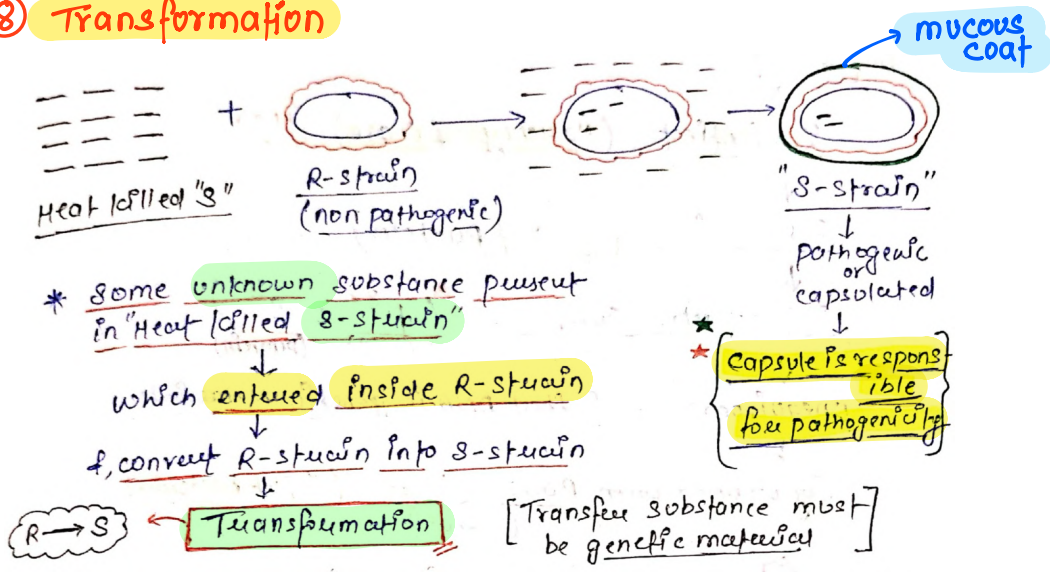 8 Transformation
mucous
coat
+
Heat killed "S"
R-strain
(non pathogenic)
"S-strain"
pathogenic
or
capsulated
* some unknown substance present
in "Heat killed S-strain"
which entered inside R-strain
&, convert R-strain into S-strain
Transformation
R → S
{capsule is respons-
ible
for pathogenicity}
[Transfer substance must
be genetic material]